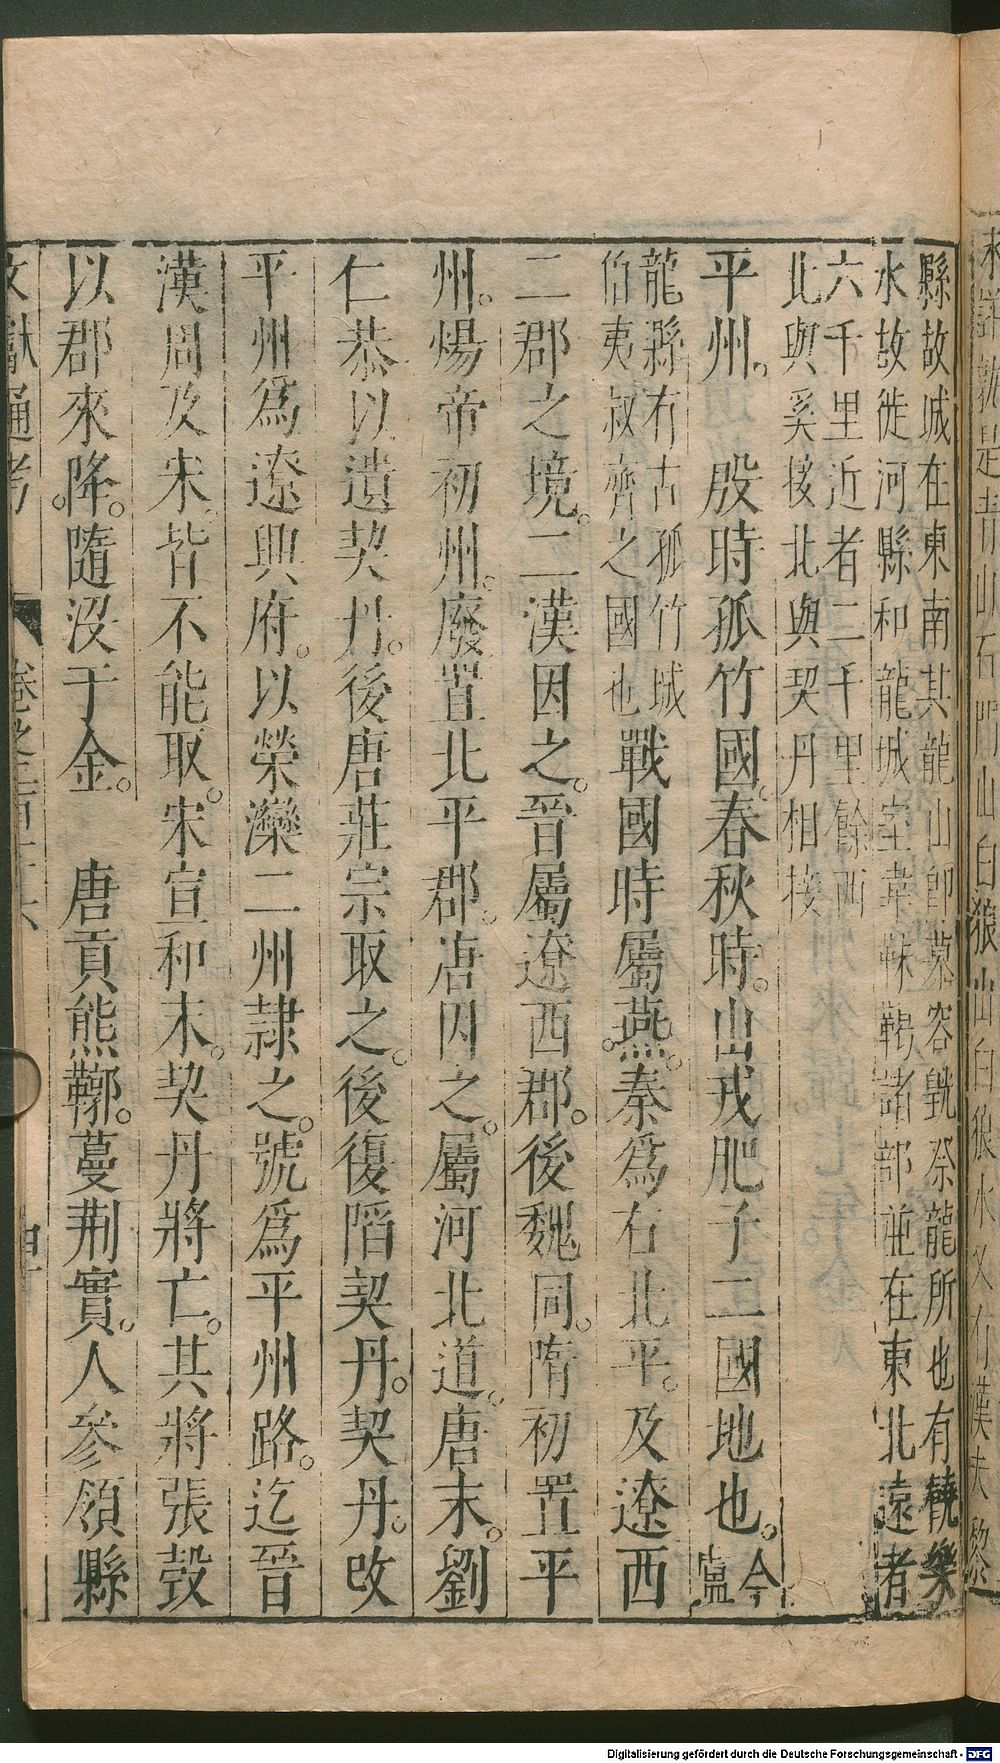 縣故城在東南其龍山卽慕容皝祭龍所也有饒樂
水故徙河縣和龍城室韋靺鞨諸部並在東北遠者
六千里近者二千里餘西
北與奚接北與契丹相接
平州。殷時孤竹國。春秋時。山戎肥子二國地也。今盧
龍縣有古孤竹城
伯夷叔齊之國也
戰國時屬燕。秦爲右北平。及遼西
二郡之境。二漢因之。晉屬遼西郡。後魏同。隋初置平
州。煬帝初州。廢置北平郡。唐因之。屬河北道。唐末。劉
仁恭以遺契丹。後唐莊宗取之。後復陷契丹。契丹。改
平州爲遼興府。以榮灤二州隷之。號爲平州路。迄晉
漢周及宋。皆不能取。宋宣和末。契丹將亡。其將張瑴
以郡來降。隨沒于金。 唐貢熊鞹。蔓荆實。人參領縣
文獻通考 卷之三百十六
Digitalisierung gefördert durch die Deutsche Forschungsgemeinschaft - DFG